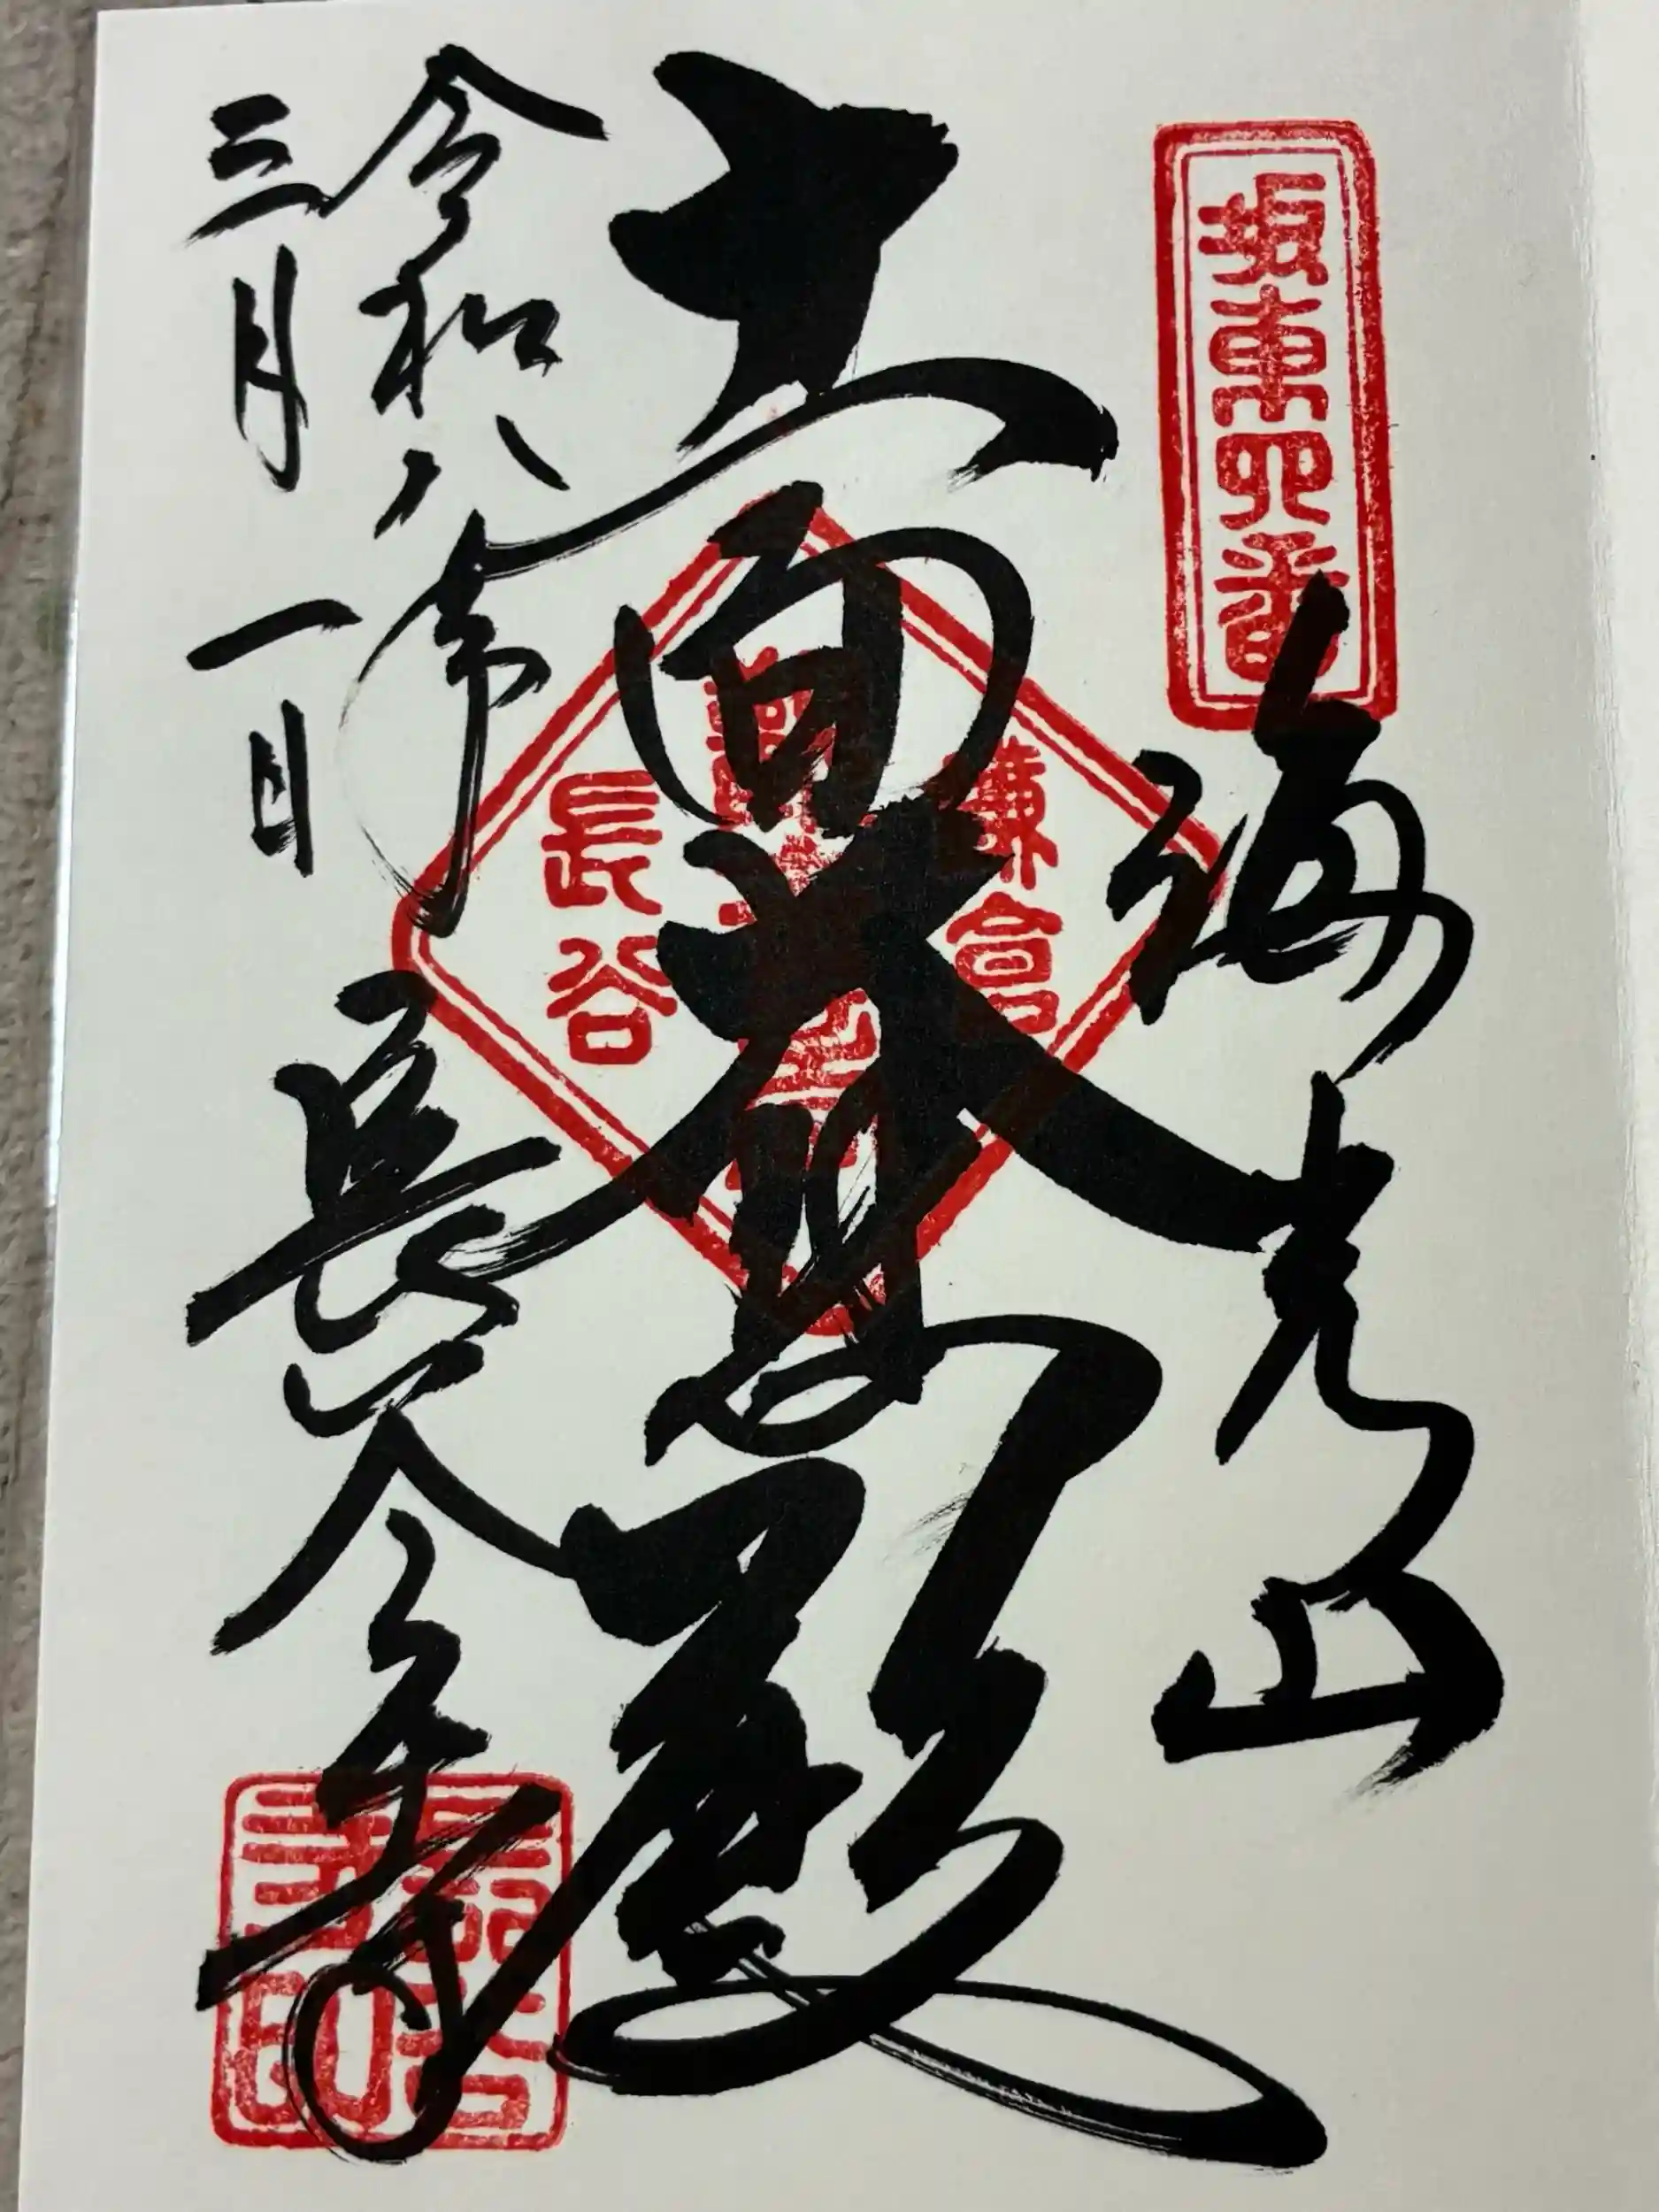 坂東四番
海光山
十一面大悲殿
鎌倉
長谷
令和八年
三月一日
長谷寺